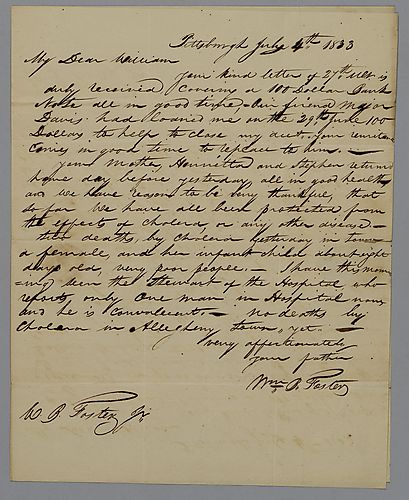 Pittsburgh July 4th 1833
My Dear William
Your kind letter of 27th Ult is
duly received covering a 100 Dollar Bank
Note all in good time, Our friend Major
Davis had loaned me on the 29th June 100
Dollars to help to close my acct. Your remittance
comes in good time to replace to him. —
Your Mother, Henrietta and Stephen returned
home day before yesterday, all in good health
and we have reason to be very thankful, that
so far we have all been protected from
the effects of cholera, or any other disease. —
two deaths, by Cholera yesterday in town
a female, and her infant child about eight
days old, very poor people. — I have this morn
=ing seen the Stewart of the Hospital, who
reports, only one man in Hospital now
and he is convalescent. — no deaths by
Cholera in Allegheny town, yet. —
very affectionately
your father
Wm. B. Foster
W. B. Foster Jr.